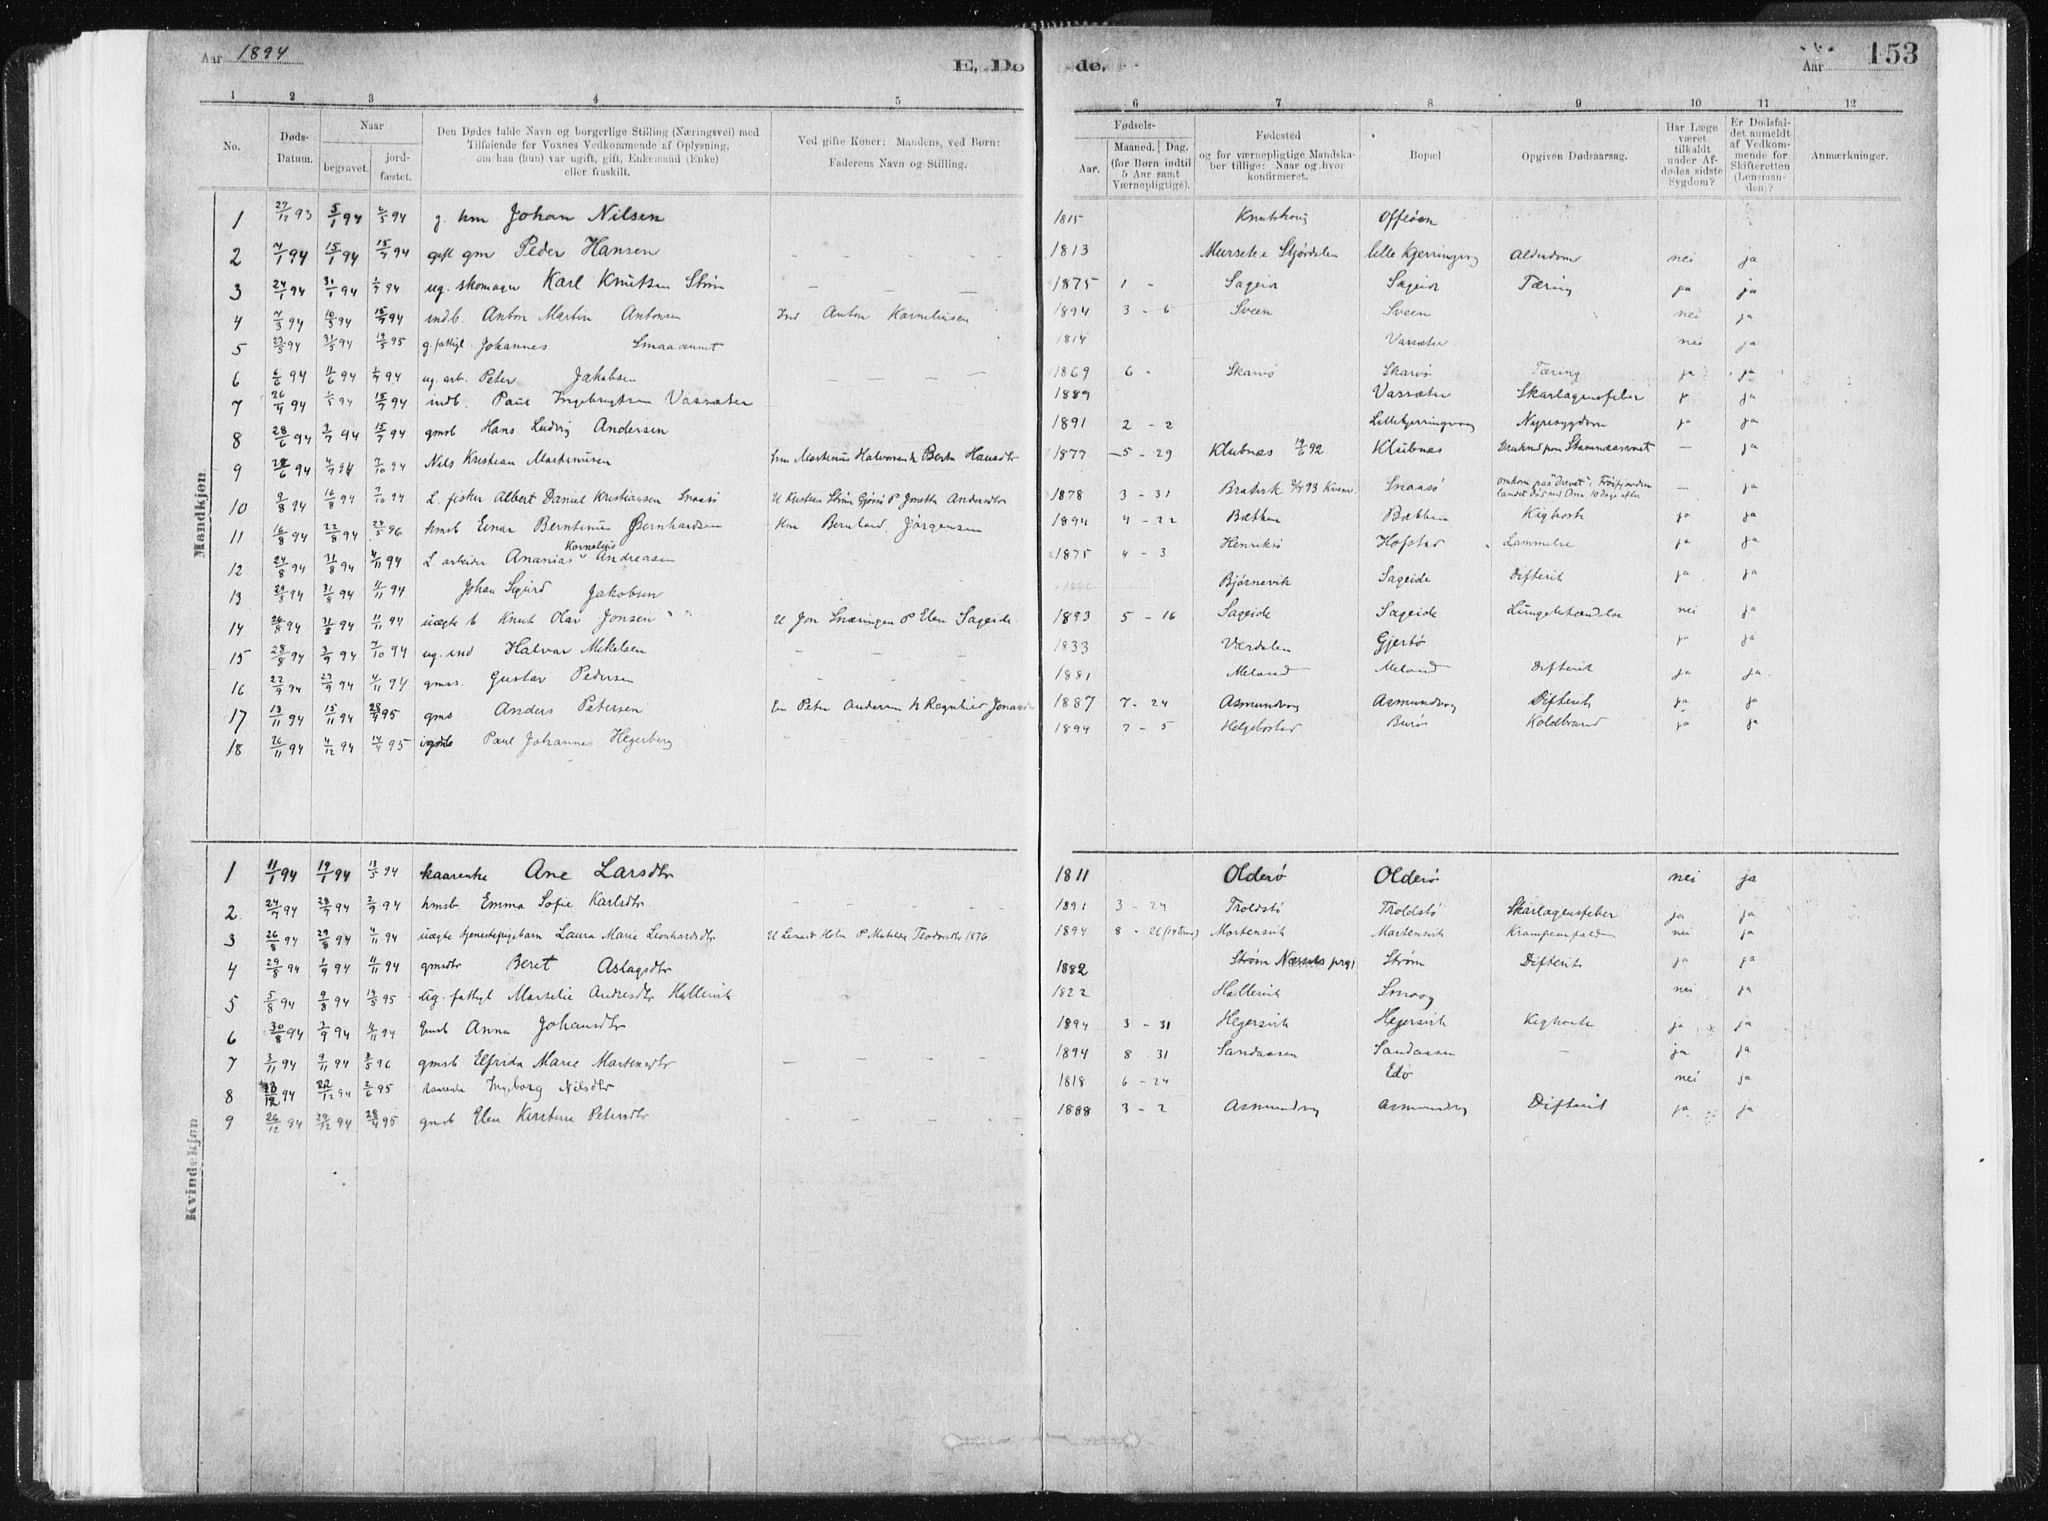 Aar 1894
E. Dø de.
Aar
153
1 2 3 4 5 6 7 8 9 10 11 12
No.
Døds-Datum.
Naar
begravet.
jord-fæstet.
Den Dødes fulde Navn og borgerlige Stilling (Næringsvei) med
Tilføiende for Voxnes Vedkommende af Oplysning,
om han (hun) var ugift, gift, Enkemand (Enke)
eller fraskilt.
Ved gifte Koner: Mandens, ved Børn:
Faderens Navn og Stilling.
Fødsels-
Aar.
Maaned. Dag.
(for Børn indtil
5 Aar samt
Værnepligtige).
Fødested
og for værnepligtige Mandska-
ber tillige: Naar og hvor
konfirmeret.
Bopæl
Opgiven Dødsaarsag.
Har Læge
været
tilkaldt
under Af-
dødes sidste
Sygdom?
Er Dødsfal-
det anmeldt
af Vedkom-
mende for
Skifteretten
(Lensman-
den)?
Anmærkninger.
Mandkjøn
1 27/11 93 5/1 94 6/5 94 g. hm Johan Nilsen 1815 Knutshaug
2 7/1 94 15/1 94 15/7 94 gm Peder Hansen – – – – 1813 lille Kjerringvaag Alderdom nei ja
3 24/1 94 31/1 94 1/7 94 ug. skomager Karl Knutsen Strøm – – – 1875 1 - Sageide Sageide Tæring ja ja
4 7/3 94 10/3 94 15/7 94 indb. Anton Martin Antonsen Ind Anton Korneliusen 1894 3 - 6 Sveen Sveen nei ja
5 23/5 94 31/5 94 19/5 95 g. fattigl. Johannes 1814 Vassæter nei ja
6 6/6 94 11/6 94 1/7 94 ug. arb. Peter Jakobsen – – – – 1869 6 - Skarvø Skarvø Tæring ja ja
7 26/4 94 1/5 94 15/7 94 indb. Paul Ingebrigtsen Vassæter 1889 Vassæter Skarlagensfeber ja
8 28/6 94 3/7 94 15/7 94 gmsb Hans Ludvig Andersen 1891 2 - 2 Lillekjerringvaag Nyresygdom ja ja
9 94 4/7 94 7/10 94 Nils Kristian Martinusen hm Martinus Halvorsen h Berta Hansdtr 1877 – 5 - 29 Klubnæs 92 Klubnæs – ja
10 9/8 94 16/8 94 7/10 94 L. fisker Albert Daniel Kristiansen Snaasø 1878 3 - 31 93 Kvenv. Snaasø omkom paa – ja
11 16/8 94 22/8 94 96 hmsb Einar Berntinus Bernhardsen Hm Bernhard Jørgensen 1894 4 - 22 Bækken Bækken Kighoste ja ja
12 24/8 94 31/8 94 4/11 94 L. arbeider Ananias Kornelius Andreasen 1875 4 - 3 Henriksø Hofstad Lammelse ja ja
13 29/8 94 31/8 94 11/11 94 Johan Sigurd Jakobsen Bjørnevik Sageide Difterit ja ja
14 26/8 94 31/8 94 11/11 94 uægte b Knut Olav Jonsen U Jon Snæringen P Elen Sageide 1893 5 - 16 Sageide Sageide Lungebetændelse nei ja
15 28/8 94 3/9 94 7/10 94 ug. ind Halvar Mikelsen – – – 1833 Værdalen Gjertø ja ja
16 22/9 94 27/9 94 4/11 94 gmss. Gustav Pedersen – – – 1881 Meland Meland Difterit ja ja
17 13/11 94 15/11 94 28/4 95 gms Anders Petersen Em Peter Andersen h Regnhild 1887 7 - 24 Asmundvaag Asmundvaag Difterit ja ja
18 26/11 94 4/12 94 14/4 95 Paul Johannes Hegerberg – – – – 1894 7 - 5 Helgebostad Burø Koldbrand ja ja
Kvindekjøn
1 11/1 94 19/1 94 13/5 94 kaarenke Ane Larsdtr – – – 1811 Olderø Olderø nei ja
2 24/7 94 28/7 94 2/9 94 hmsb. Emma Sofie Karlsdtr – – – – 1891 3 - 24 Troldstø Troldstø Skarlagensfeber ja ja
3 26/8 94 29/8 94 4/11 94 uægte tjenestepigebarn Laura Marie Leonhardsdtr U Lenard Holm P Matilde Teodorsdtr 1876 1894 8 - 26 Mortensvik Mortensvik Krampeanfald nei ja
4 29/8 94 1/9 94 11/11 94 gmsdtr Beret Aslagsdtr 1882 Strøm Strøm Difterit ja ja
5 5/8 94 9/8 94 19/5 95 ug. fattigl Marselie Andresdtr Hallervik 1822 Hallervik Smaag nei ja
6 30/8 94 3/9 94 4/11 94 gmsb Anna Johansdtr 1894 3 - 31 Hegersvik Hegersvik Kighoste ja ja
7 3/11 94 9/11 94 3/5 96 gmsb Elfrida Marie Martensdtr – – – – 1894 8 31 Sandaasen Sandaasen – ja ja
8 94 22/12 94 2/6 95 kaarenke Ingeborg Nilsdtr 1818 6 - 24 Edø nei ja
9 26/12 94 29/12 94 28/4 95 gmsb Elen Kirstine Petersdtr – – – – 1888 3 - 2 Asmundvaag Asmundvaag Difterit ja ja